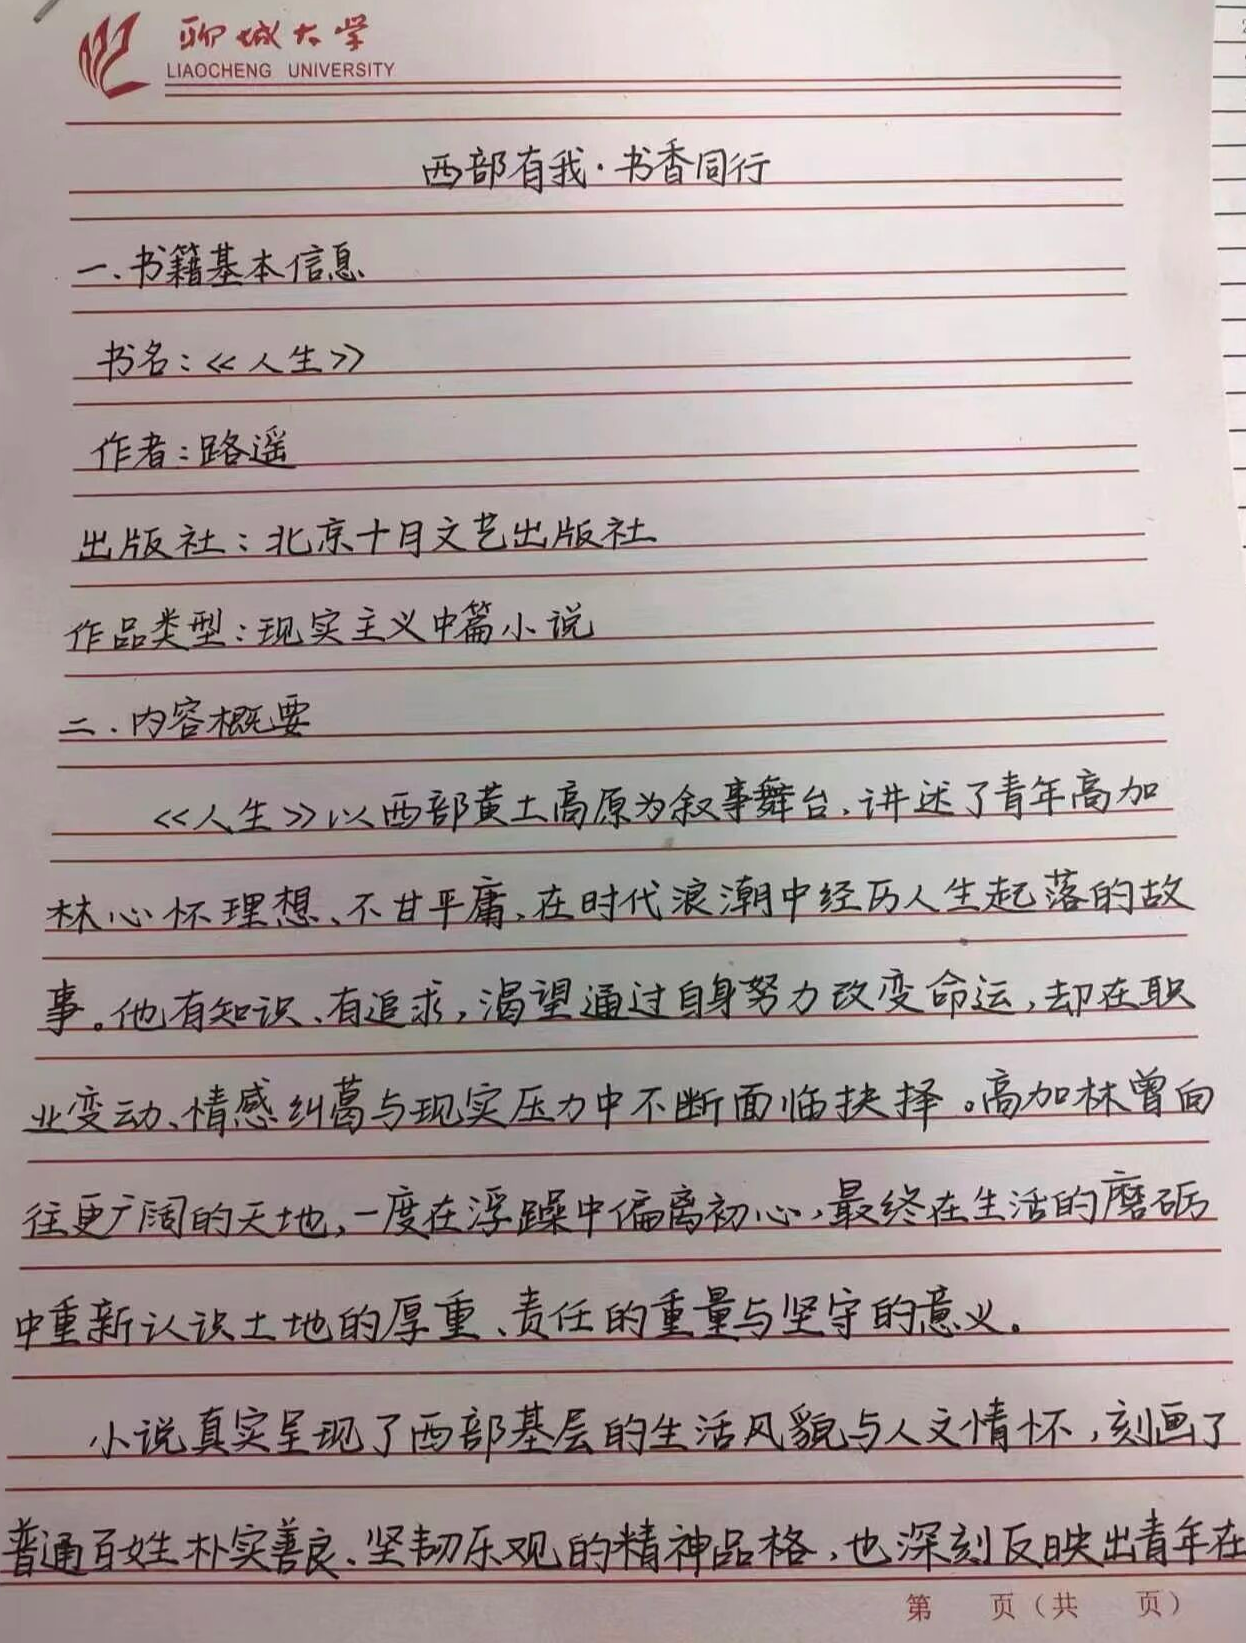 聊城大学
LIAOCHENG UNIVERSITY
西部有我·书香同行
一.书籍基本信息
书名:《人生》
作者:路遥
出版社:北京十月文艺出版社
作品类型:现实主义中篇小说
二.内容概要
《人生》以西部黄土高原为叙事舞台,讲述了青年高加
林心怀理想、不甘平庸,在时代浪潮中经历人生起落的故
事。他有知识、有追求,渴望通过自身努力改变命运,却在职
业变动、情感纠葛与现实压力中不断面临抉择。高加林曾向
往更广阔的天地,一度在浮躁中偏离初心,最终在生活的磨砺
中重新认识土地的厚重、责任的重量与坚守的意义。
小说真实呈现了西部基层的生活风貌与人文情怀,刻画了
普通百姓朴实善良、坚韧乐观的精神品格,也深刻反映出青年在
第 页(共 页)